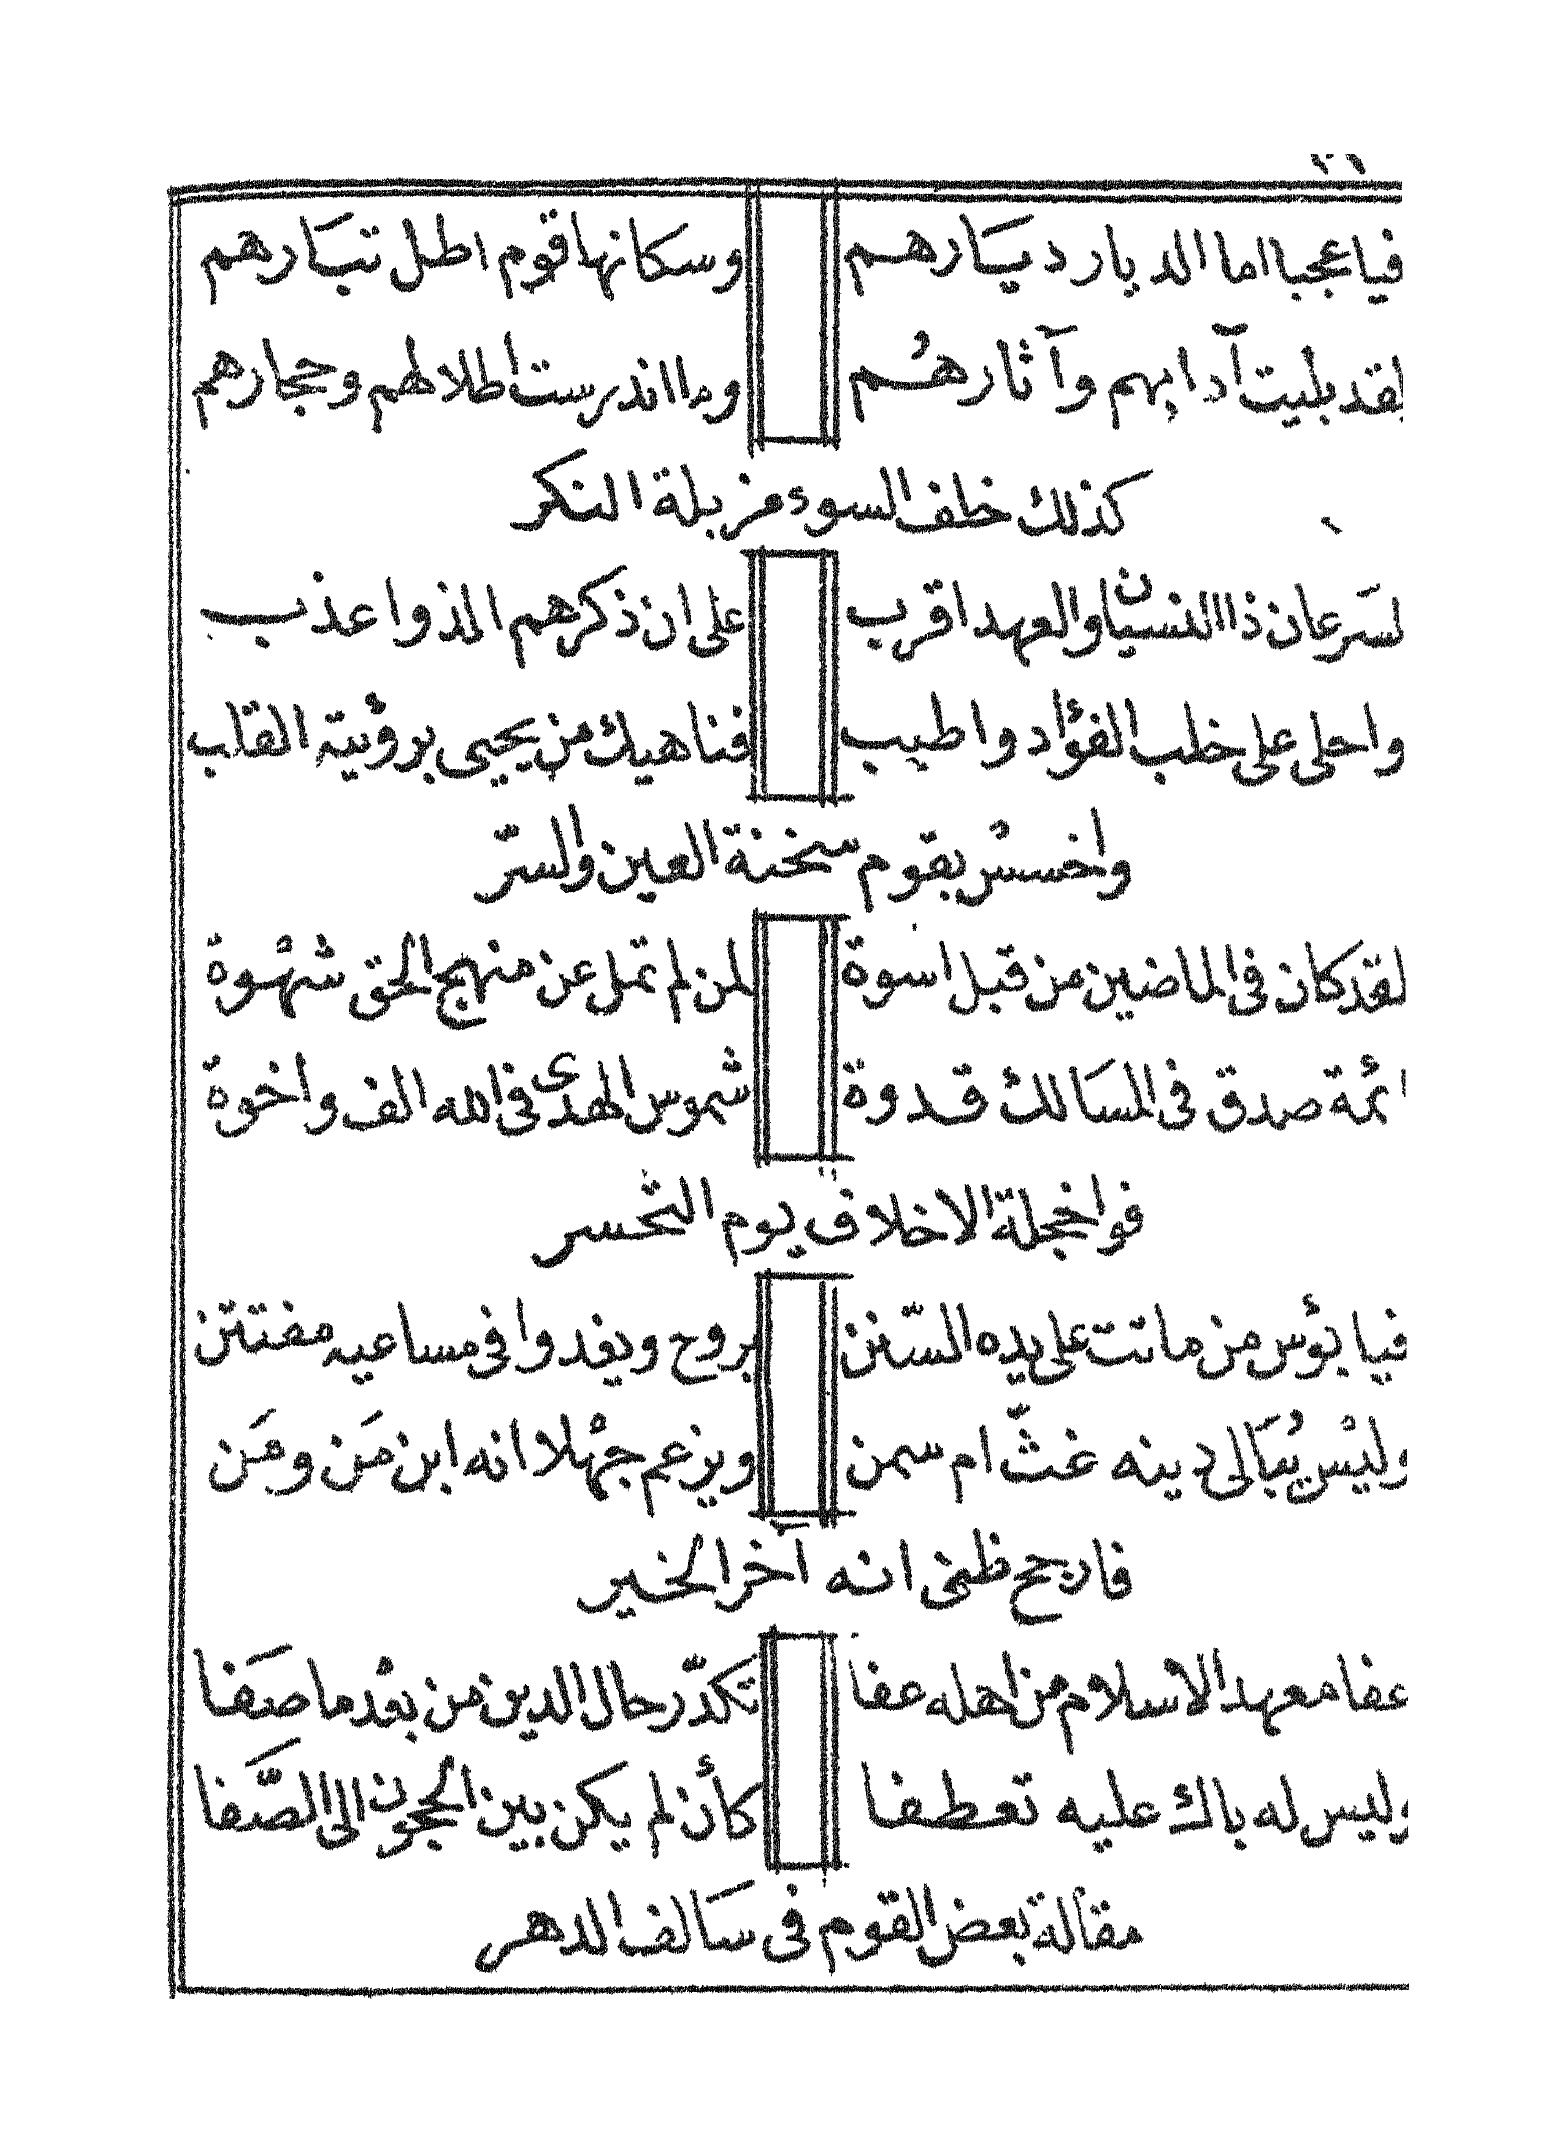 فياعجبا اما الديار ديَارهم وسكانها قوم اطل تبَارهم
لقد بليت آدابهم وآثارهُم وما اندرست اطلالهم وحجارهم
كذلك خلف السوء مزبلة النكر
لسَرعان ذا النسيان والعهد اقرب على ان ذكرهم الذ واعذب
واحلى على خلب الفؤاد واطيب فناهيك من يحيى برؤية القلب
واخسسْ بقوم سخنة العين والسرّ
لقد كان فى الماضين من قبل اسوة لمن لم تمل عن منهج الحق شهْوة
ائمة صدق فى المسَالك قدوة شموس الهدى فى الله الف واخوة
فواخجلة الاخلاف يوم التحسر
فيا بؤس من ماتت على يده السّنن يروح ويغدوا فى مساعيه مفتتن
وليْس يُبَالى دينه غثّ ام سمن ويزعم جهْلا انه ابن مَن ومَن
فاريح ظنى انه آخر الخير
عفا معهد الاسلام من اهله عفا تكدّر حال الدين من بعْد ما صَفا
وليس له باك عليه تعطفا كأن لم يكن بين الحجون الى الصَّفا
مقالة بعض القوم فى سَالف الدهر